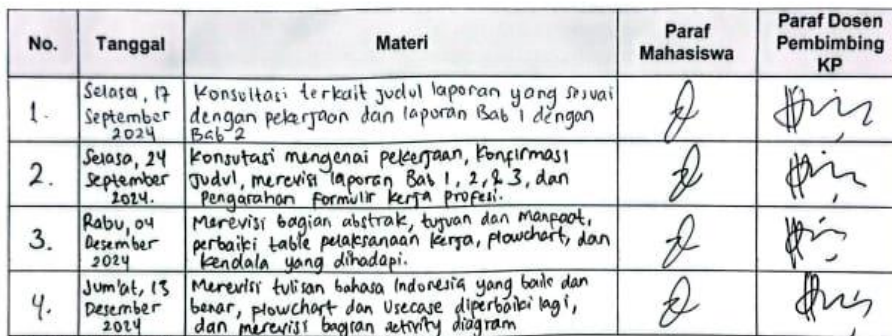 No. Tanggal Materi Paraf Mahasiswa Paraf Dosen Pembimbing KP
1. Selasa, 17 September 2024
Konsultasi terkait judul laporan yang sesuai
dengan pekerjaan dan laporan Bab 1 dengan
Bab 2
2. Selasa, 24 September 2024.
Konsutasi mengenai pekerjaan, Konfirmasi
Judul, merevisi laporan Bab 1, 2, & 3, dan
Pengarahan Formulir kerja profesi.
3. Rabu, 04 Desember 2024
Merevisi bagian abstrak, tujuan dan manfaat,
perbaiki table pelaksanaan kerja, flowchart, dan
kendala yang dihadapi.
4. Jum'at, 13 Desember 2024
Merevisi tulisan bahasa Indonesia yang baik dan
benar, flowchart dan Usecase diperbaiki lagi,
dan merevisi bagian activity diagram